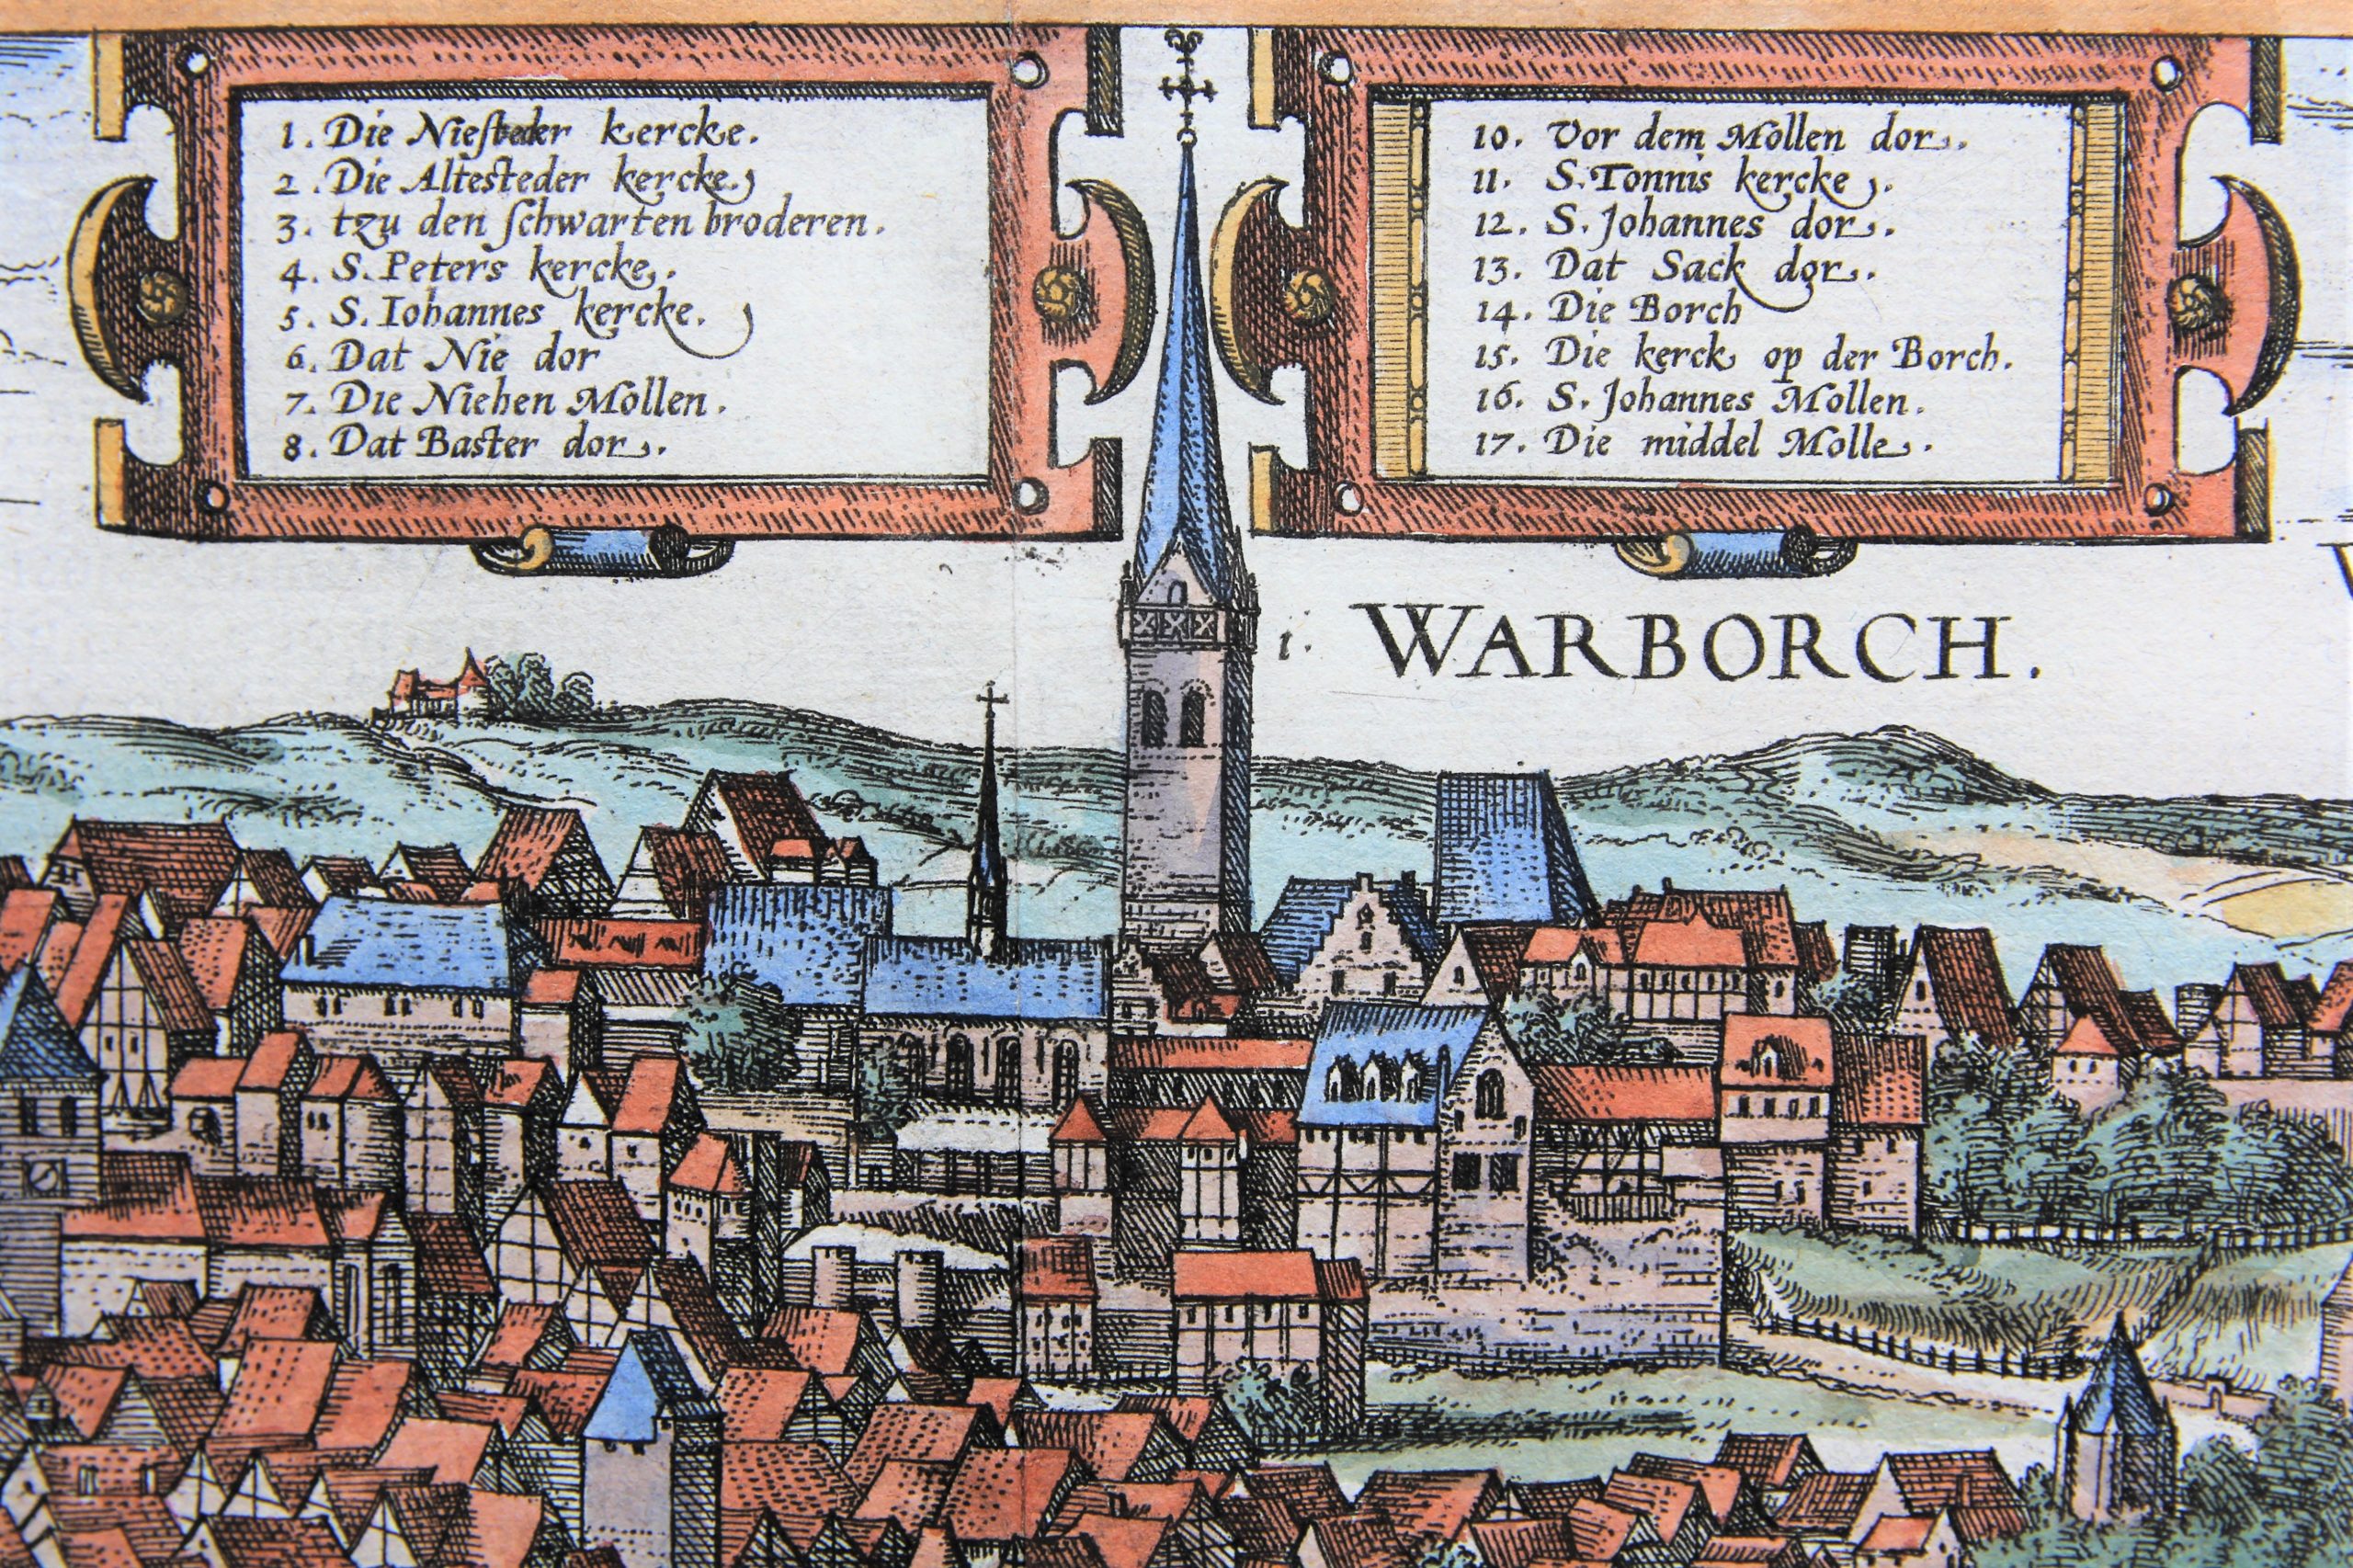 1. Die Niesteder kercke.
2. Die Altesteder kercke.
3. tzu den schwarten broderen.
4. S. Peters kercke.
5. S. Iohannes kercke.
6. Dat Nie dor
7. Die Niehen Mollen.
8. Dat Baster dor.
10. Vor dem Mollen dor.
11. S. Tonnis kercke.
12. S. Johannes dor.
13. Dat Sack dor.
14. Die Borch
15. Die kerck op der Borch.
16. S. Johannes Mollen.
17. Die middel Molle.
1. WARBORCH.